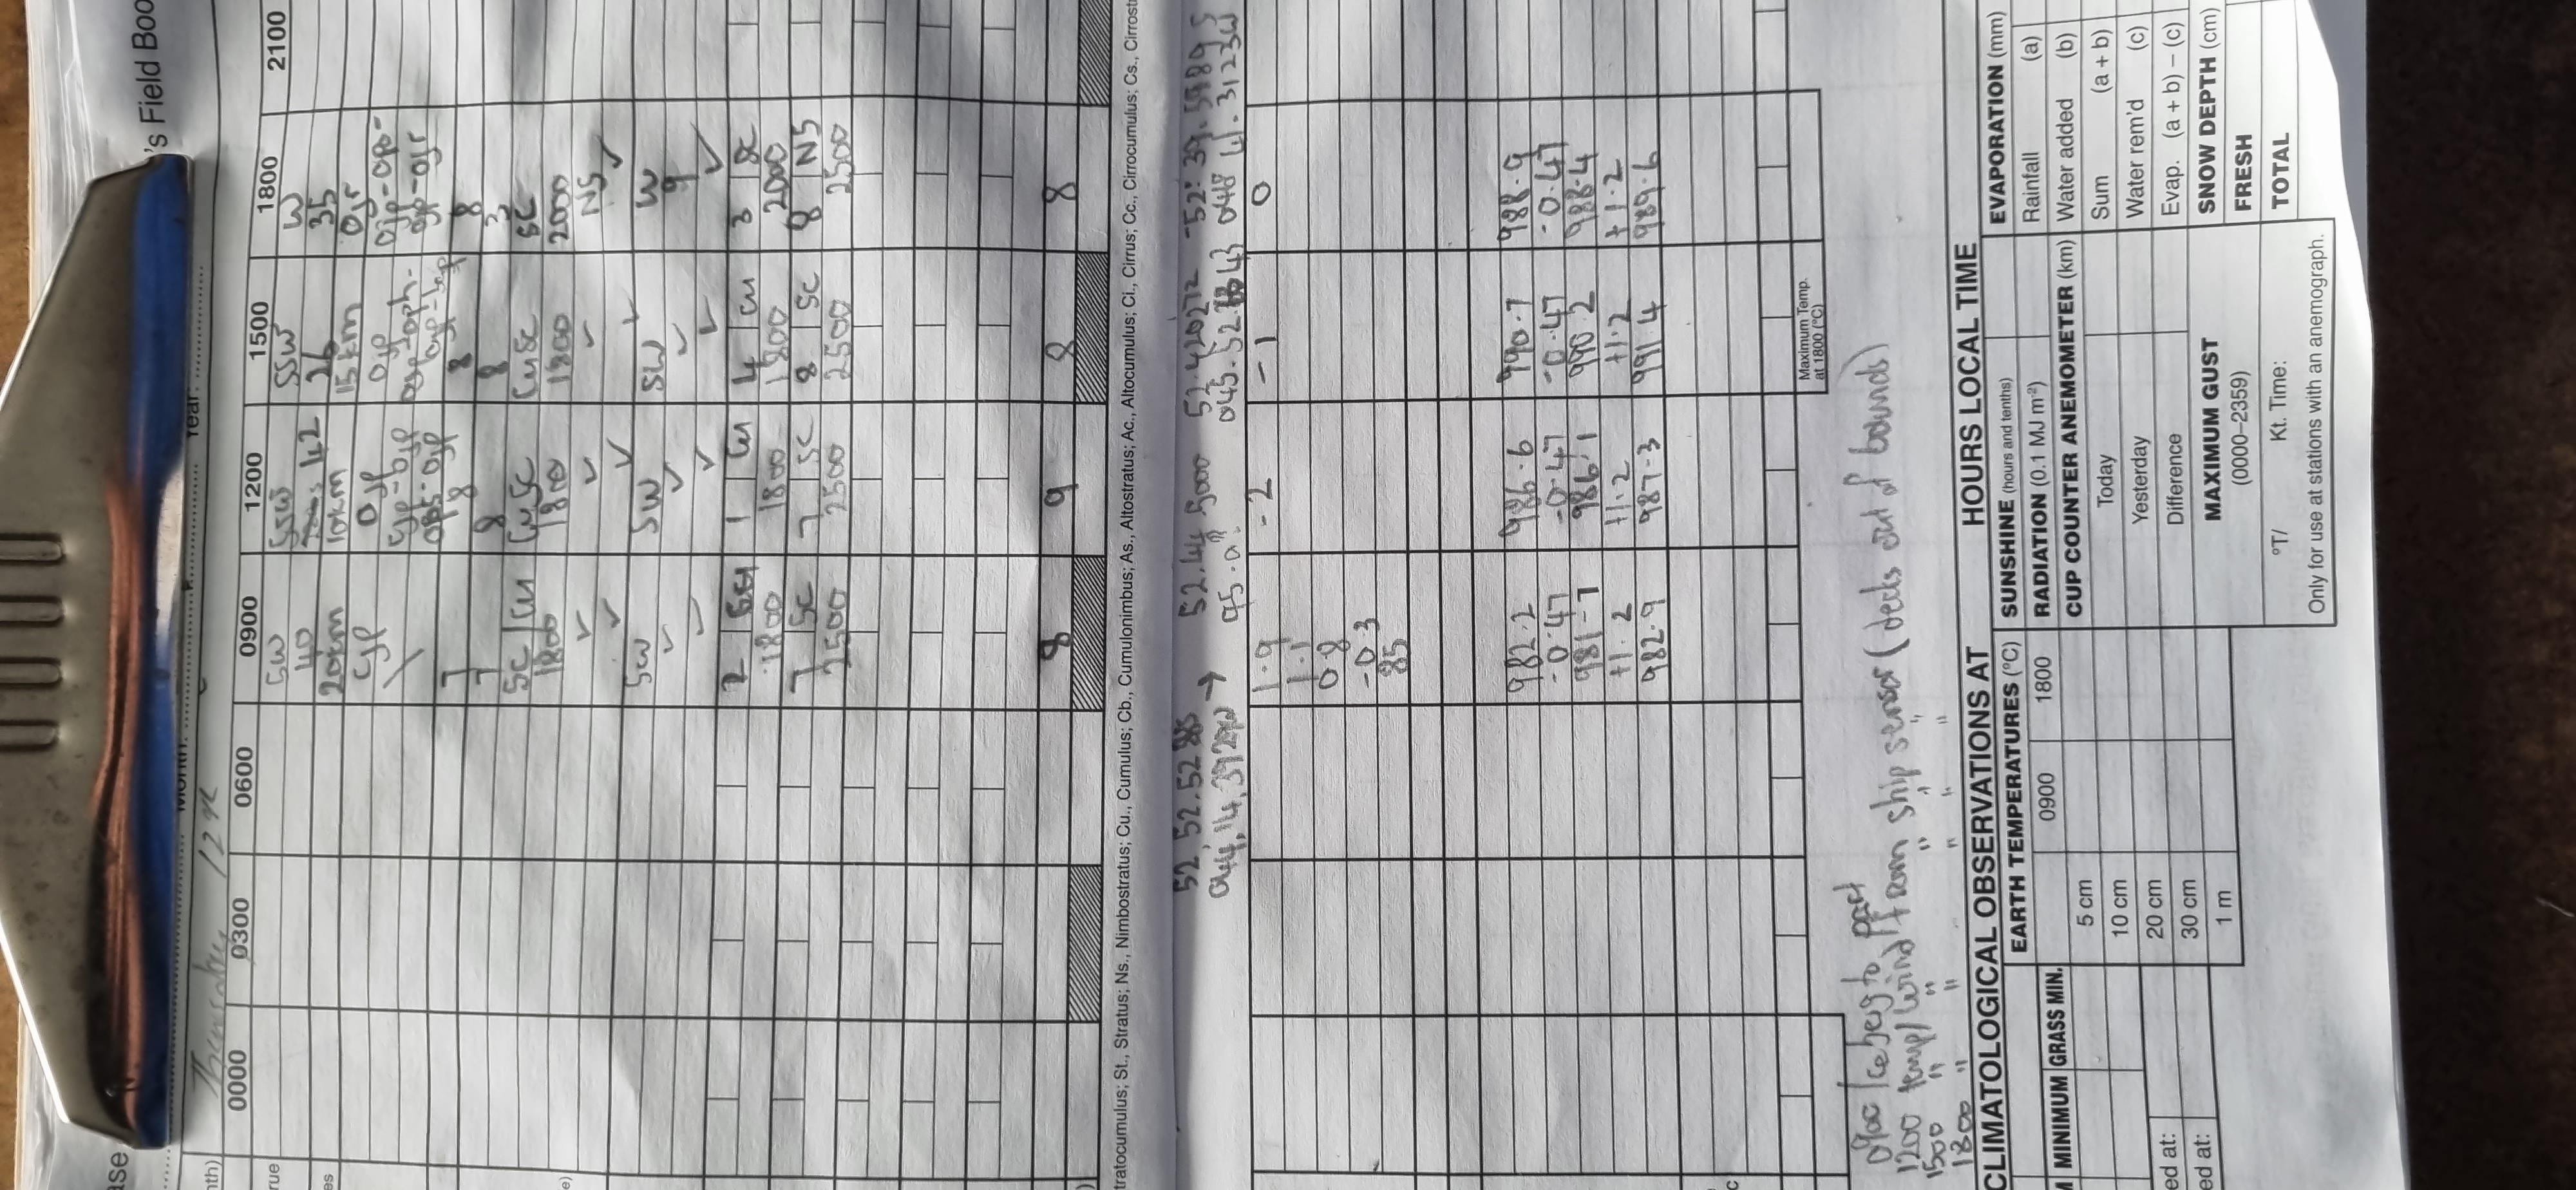 's Field Boo
ase
Month: Year:
Thursday 12
nth) 0000 0300 0600 0900 1200 1500 1800 2100
rue SW SSW SSW W
es 40 42 26 35
20km 10km 15km
cjp 0jp 0jp
7 8 8 8
7 8 8 3
SC/Cu CuSC CuSC SC
e) 1800 1800 1800 2000
✓ ✓ ✓ NS
✓ ✓ ✓ ✓
SW SW SW W
✓ ✓ ✓ 9
✓ ✓ ✓ ✓
2 1 Cu 4 Cu 3 SC
1800 1800 1800 2000
7 SC 7 SC 8 SC 8 NS
2500 2500 2500 2500
) 8 9 8 8
tratocumulus; St., Stratus; Ns., Nimbostratus; Cu., Cumulus; Cb., Cumulonimbus; As., Altostratus; Ac., Altocumulus; Ci., Cirrus; Cc., Cirrocumulus; Cs., Cirrost
52.52.52 52.44 5000 52.420272 -52:39.5989 S
→ 048 41.3123W
1.9 -2 -1 0
1.1
0.8
-0.3
85
982.2 986.6 990.7 988.9
-0.47 -0.47 -0.47 -0.47
981-7 986.1 990.2 988.4
+1.2 +1.2 +1.2 +1.2
982.9 987-3 991.4 989.6
Maximum Temp.
at 1800 (°C)
0900 Iceberg to port
1200 temp/wind from ship sensor (decks out of bounds)
1500 " " " "
1800 " " " "
CLIMATOLOGICAL OBSERVATIONS AT HOURS LOCAL TIME
M MINIMUM GRASS MIN.
ed at:
ed at:
EARTH TEMPERATURES (°C)
0900 1800
5 cm
10 cm
20 cm
30 cm
1 m
SUNSHINE (hours and tenths)
RADIATION (0.1 MJ m⁻²)
CUP COUNTER ANEMOMETER (km)
Today
Yesterday
Difference
MAXIMUM GUST
(0000–2359)
°T/ Kt. Time:
Only for use at stations with an anemograph.
EVAPORATION (mm)
Rainfall (a)
Water added (b)
Sum (a + b)
Water rem'd (c)
Evap. (a + b) – (c)
SNOW DEPTH (cm)
FRESH
TOTAL